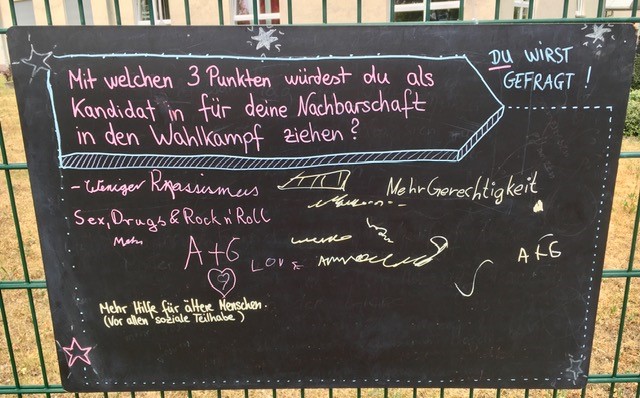 DU WIRST
GEFRAGT!
Mit welchen 3 Punkten würdest du als
Kandidat in für deine Nachbarschaft
in den Wahlkampf ziehen?
- Weniger
Mehr Gerechtigkeit
Sex, Drugs & Rock n' Roll
Mehr
A+G
LOVE
A+G
Mehr Hilfe für ältere Menschen.
(Vor allen soziale Teilhabe)